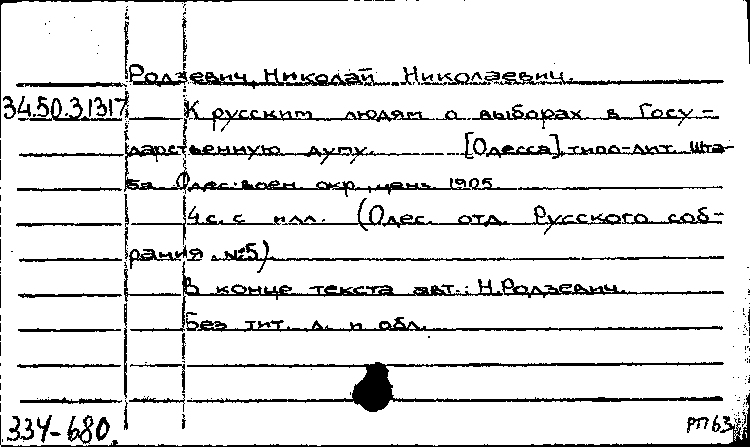 Родзевич, Николай Николаевич.
34.50.3.1317 К русским людям о выборах в Госу-
дарственную думу. [Одесса], типо-лит. Шта-
ба Одес. воен. окр., ценз. 1905.
4 с. с илл. (Одес. отд. Русского соб-
рания. №5).
В конце текста авт.: Н. Родзевич.
Без тит. л. и обл.
334-680.
РП 63